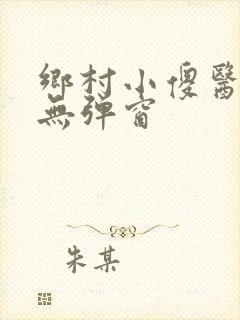 鄉村小傻醫
無彈窗
朱某